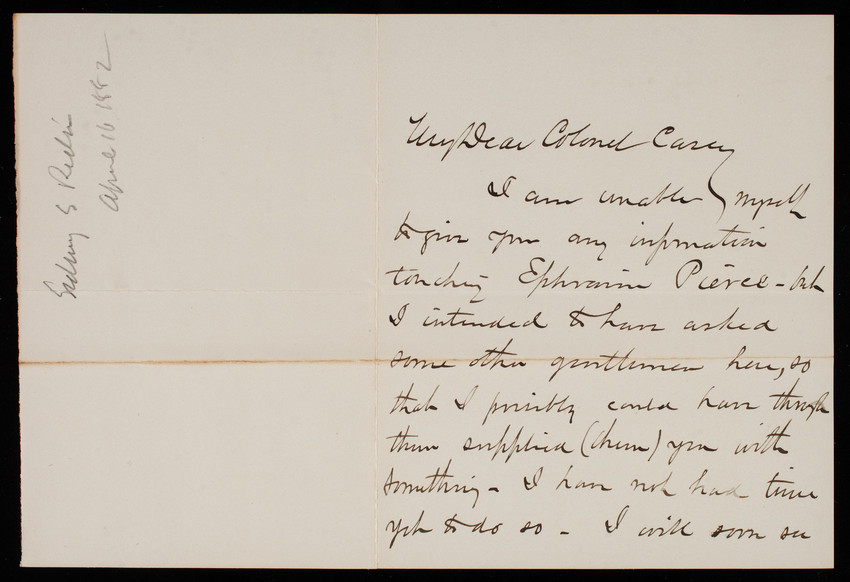 Sidney S Rider
April 16 1882
My Dear Colonel Casey
I am unable myself
to give you any information
touching Ephraim Pierce - but
I intended to have asked
some other gentlemen here, so
that I possibly could have through
them supplied (them) you with
something - I have not had time
yet to do so - I will soon see